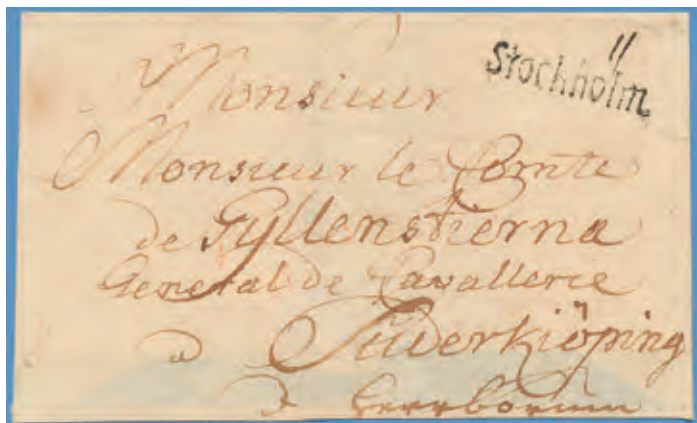 11
Stockholm
Monsieur
Monsieur le Comte
de Gyllenstierna
General de Cavallerie
a Süderkiöping
a